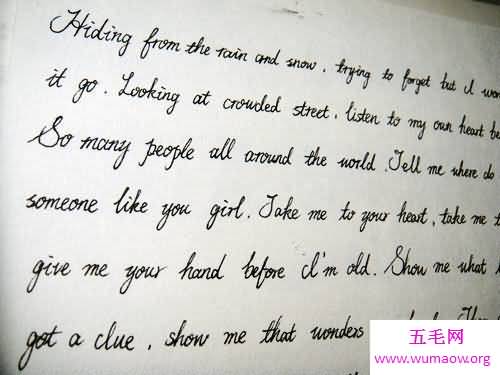 Hiding from the rain and snow. trying to forget but I won
it go. Looking at crowded street, listen to my own heart be
So many people all around the world. Tell me where do
someone like you girl. Take me to your heart, take me t
give me your hand before I'm old. Show me what l
got a clue, show me that wonders
五毛网
www.wumaow.org